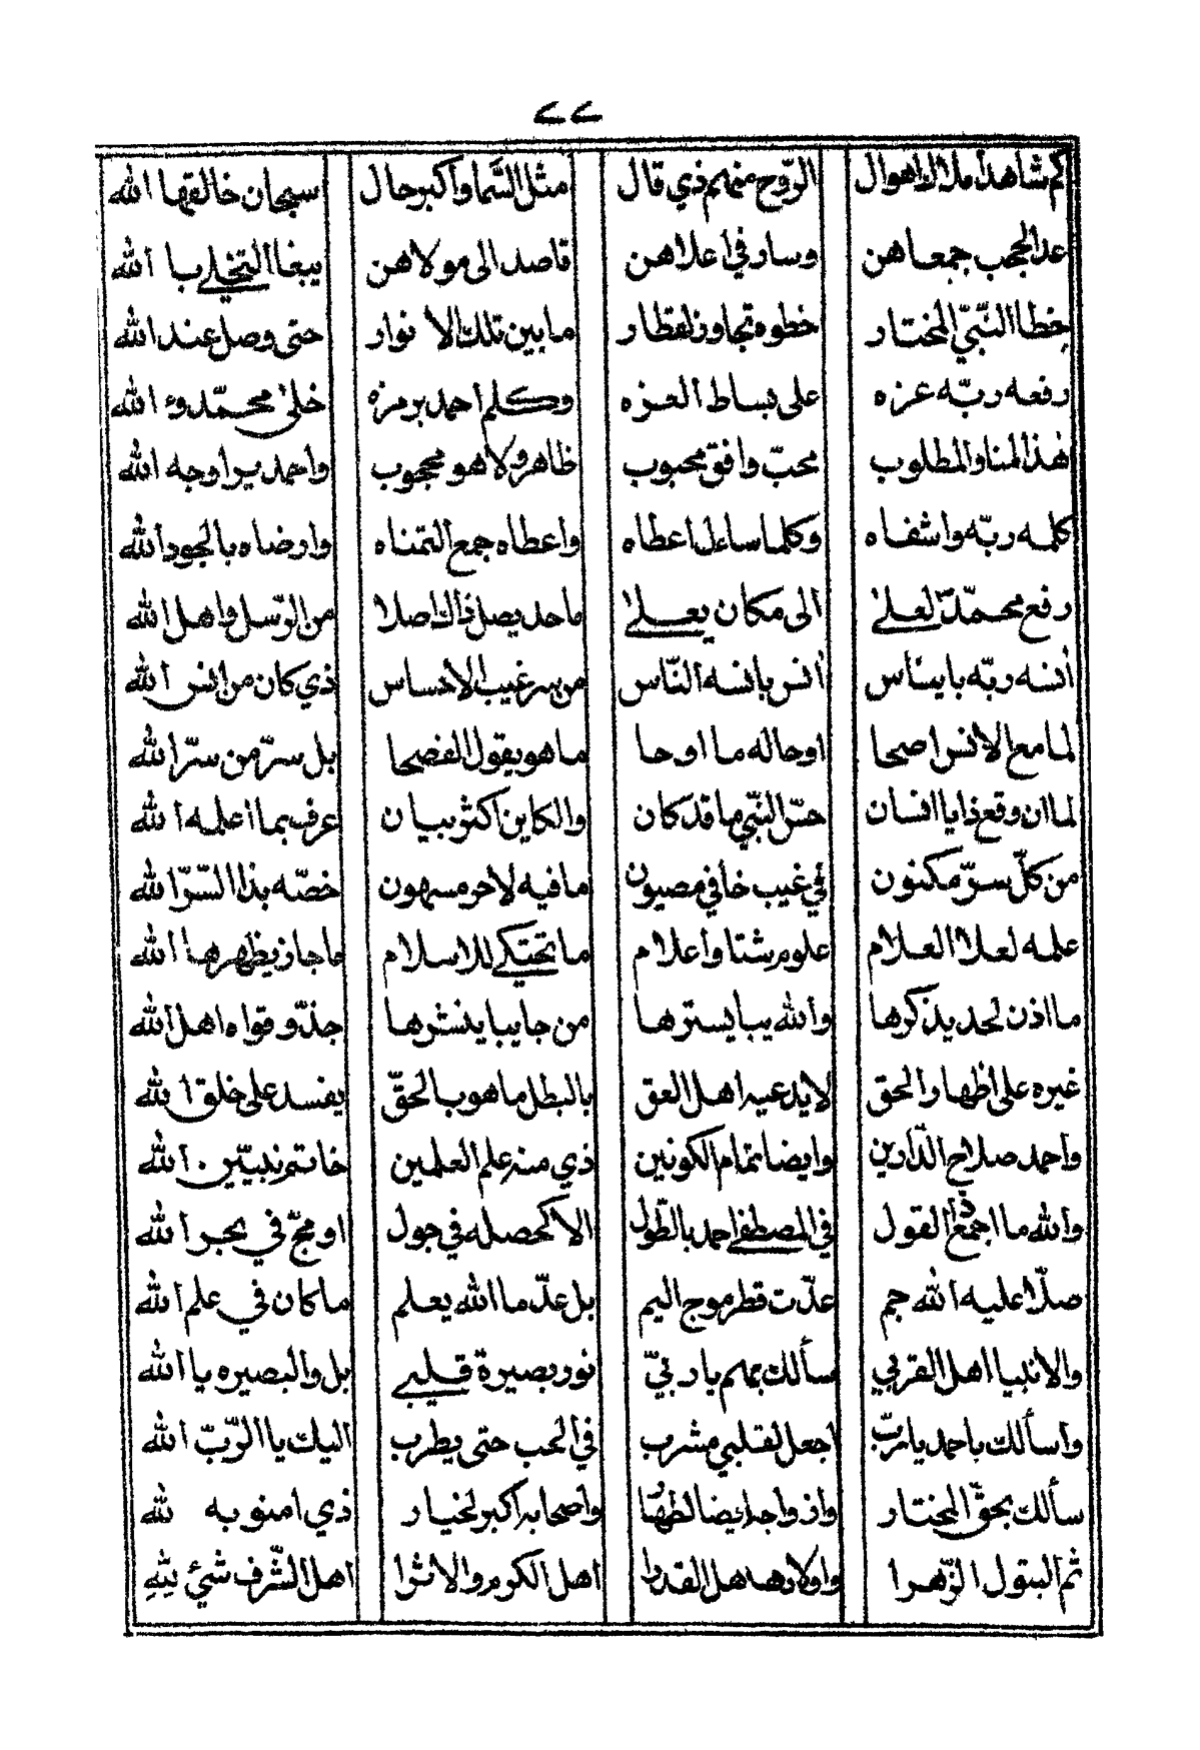 ٤٤
كم شاهد املاك اهوال الرّوح منهم ذي قال مثل السَّما واكبر حال سبحان خالقها الله
عدا الحجب جمعاهن وسار في اعلاهن قاصد الى مولاهن يبغا التخلي با الله
خطا النّبيّ المختار خطوه تجاوز لقطار مابين تلك الا نوار حتى وصل عند الله
رفعه ربّه عزه على بساط العزه وكلم احمد برمزه خلى محمّد و الله
هذا المنا والمطلوب محبّ وافق محبوب ظاهر ولاهو محجوب واحمد يرا وجه الله
كلمه ربّه واشفاه وكلما ساءل اعطاه واعطاه جمع التمناه وارضاه بالجود الله
رفع محمّد لعلى الى مكان يعلى ماحد يصل ذاك اصلا من الرّسل واهل الله
أنسه ربّه بايناس أنس بانسه النّاس من سر غيب الاحساس ذي كان من انس الله
لما مع الانس اصحا اوحا له ما اوحا ما هو يقول الفصحا بل سرّ من سرّ الله
لما ان وقع ذا يا انسان حسّ النّبي ما قد كان والكاين اكثر ببيان عرف بما اعلمه الله
من كلّ سرّ مكنون في غيب خافي مصيون ما فيه لاحرمسهون خصّه بذا السّرّ الله
علمه لعلا العلام علوم شتا واعلام ما تحتكي للاسلام ماجاز يظهرها الله
ما اذن لحد يذكرها والله يبا يسترها من جا يبا ينشرها جذّ وقواه اهل الله
غيره على اظهار الحق لا يدعيه اهل العق بالبطل ما هو بالحقّ يفسد على خلق الله
واحمد صلاح الدّارين وايضا تمام الكونين ذي منه علم العلمين خاتم نبيّين الله
والله ما اجمع القول في المصطفى احمد بالطّول الا كحصله في جول او مجّ في بحر الله
صلّا عليه الله جم عدّت قطر موج اليم بل عدّ ما الله يعلم ما كان في علم الله
والانبيا اهل القربي سألك بهم يا ربيّ نور بصيرة قلبي بل والبصيره يا الله
واسألك باحمد يا ربّ اجعل لقلبي مشرب في الحب حتى يطرب اليك يا الرّبّ الله
سألك بحقّ المختار وازواجه ايضا لطهار واصحابه اكبر لخيار ذي امنو به لله
ثم البتول الزّهرا واولادها اهل القدرا اهل الكرم والاثرا اهل الشّرف شيء لله